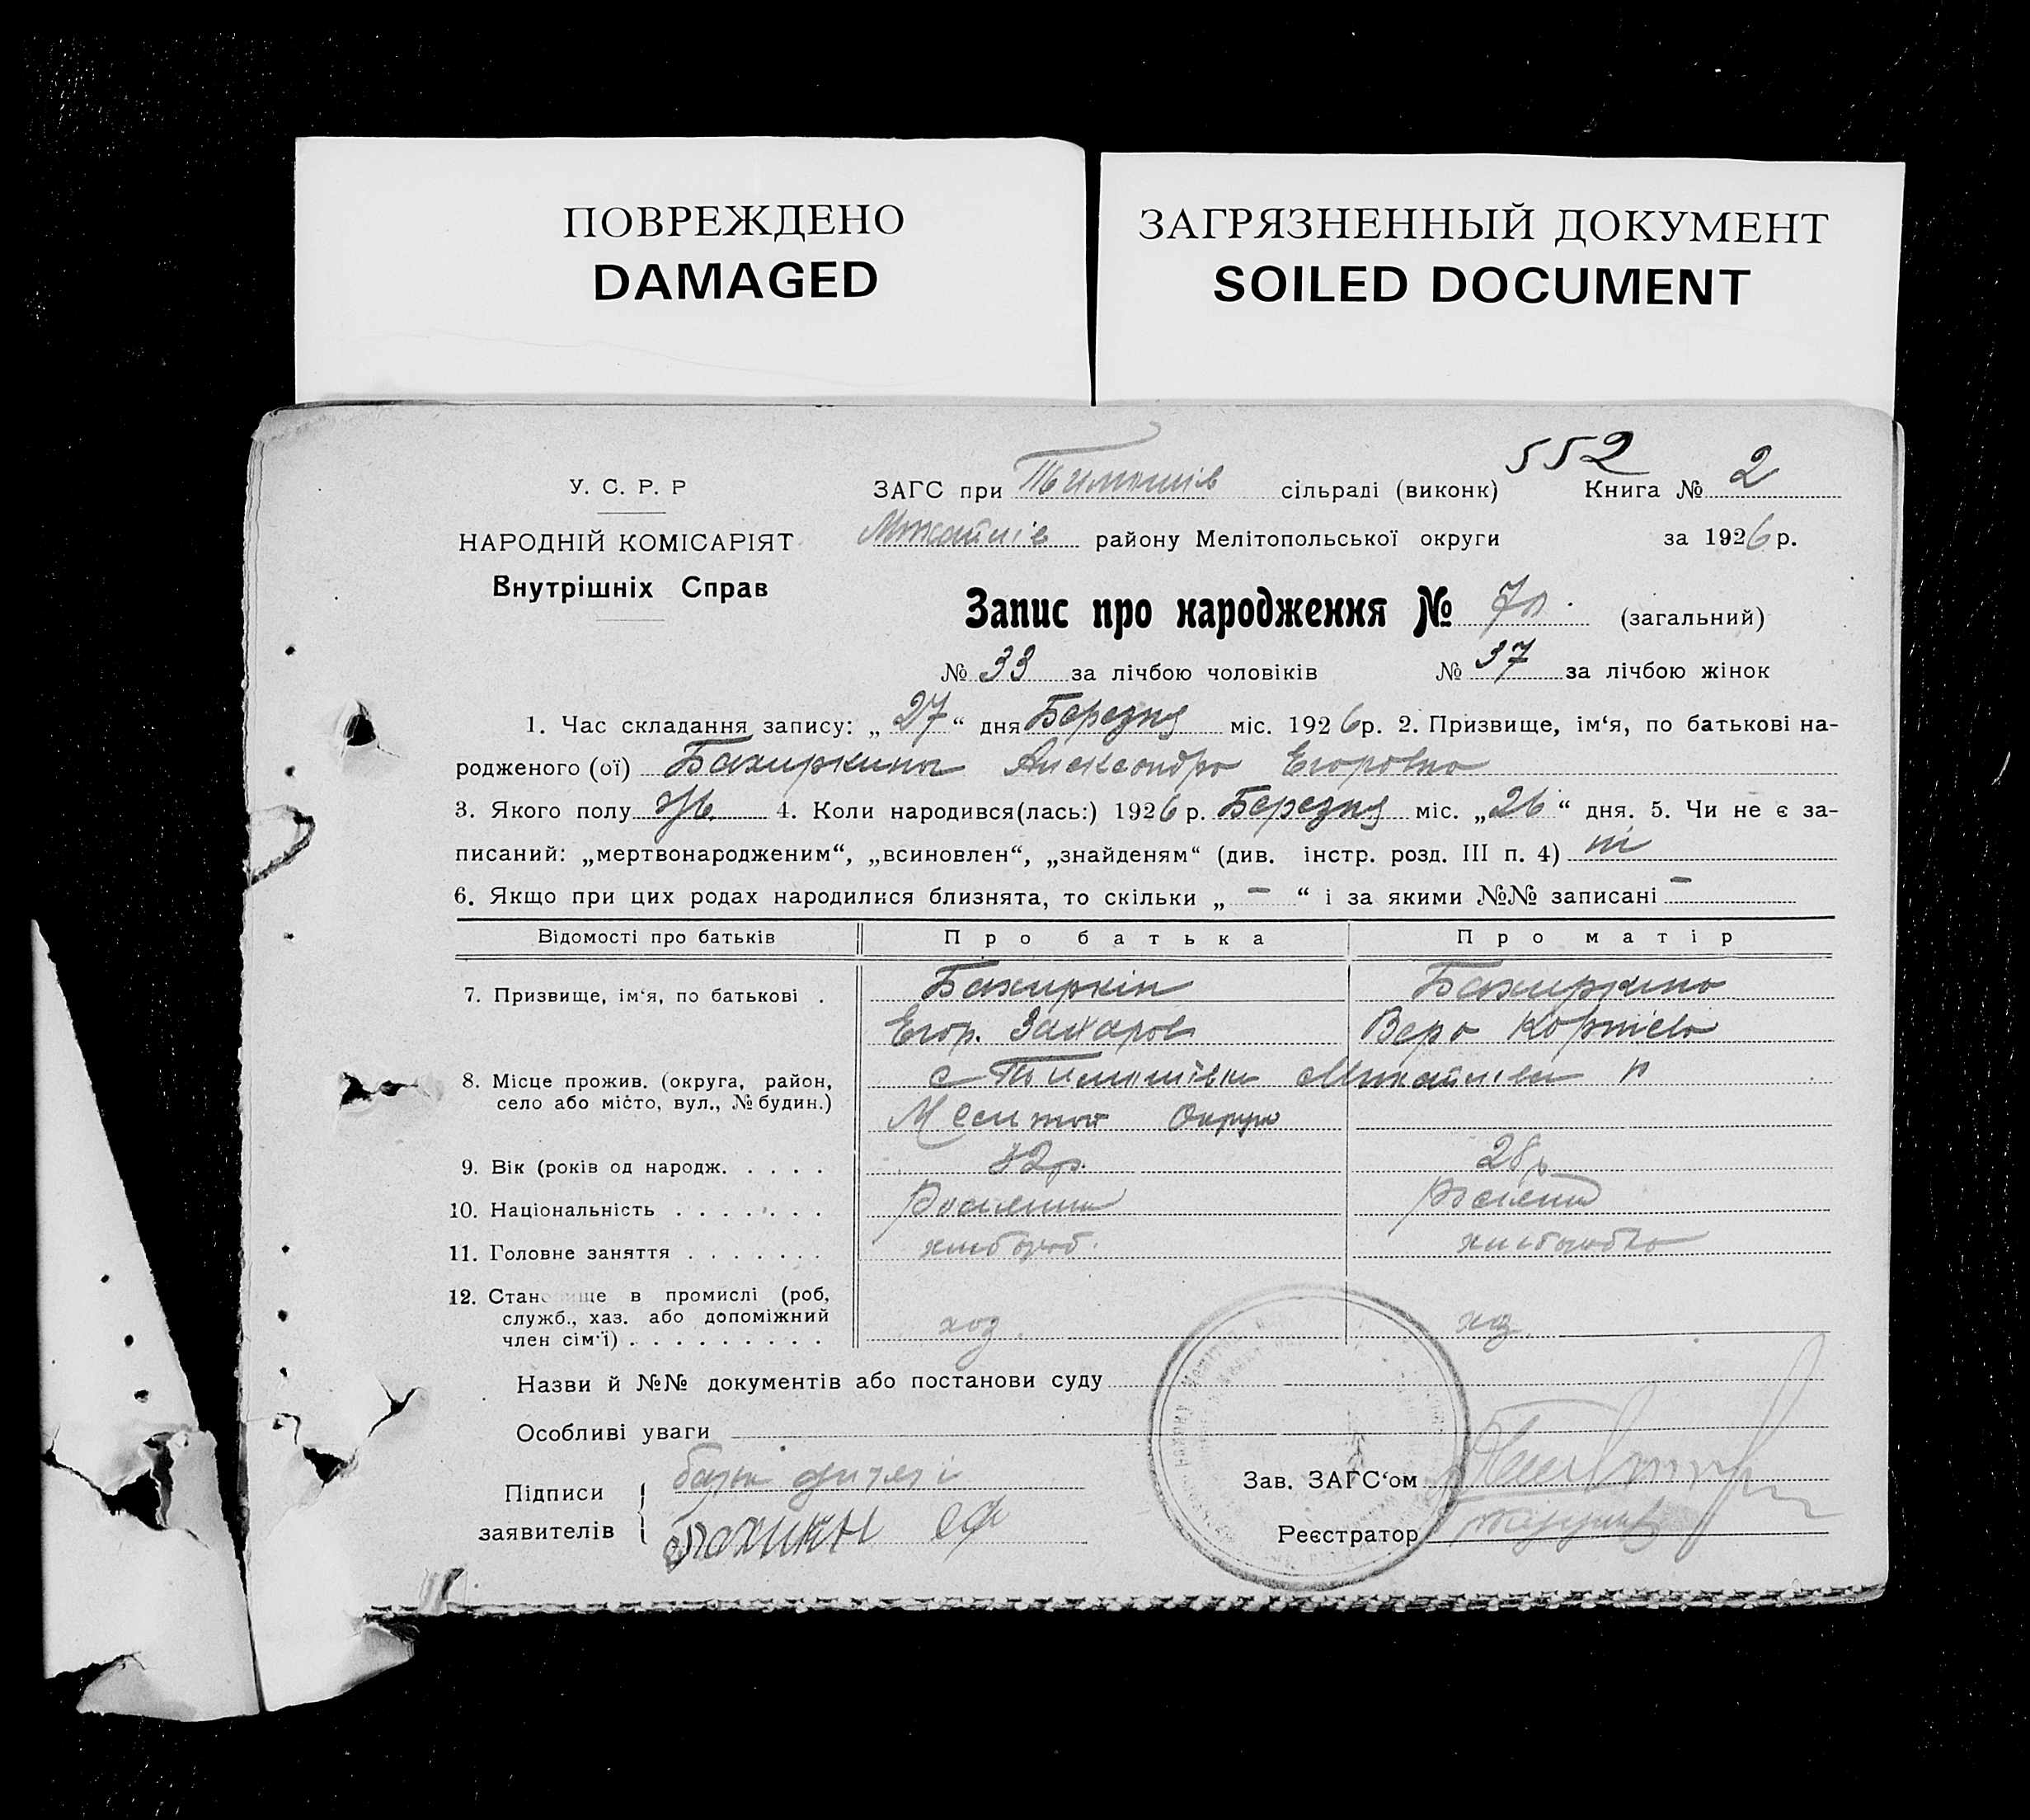 ПОВРЕЖДЕНО
DAMAGED
ЗАГРЯЗНЕННЫЙ ДОКУМЕНТ
SOILED DOCUMENT
552
У. С. Р. Р
НАРОДНІЙ КОМІСАРІЯТ
Внутрішніх Справ
ЗАГС при Тимошів сільраді (виконк) Книга № 2
Михайлів району Мелітопольської округи за 1926 р.
Запис про народження № 70. (загальний)
№ 33 за лічбою чоловіків № 37 за лічбою жінок
1. Час складання запису: „27“ дня Березня міс. 1926 р. 2. Призвище, ім‘я, по батькові на-
родженого (ої) Бахиркина Александра Егоровна
3. Якого полу Ж. 4. Коли народився(лась:) 1926 р. Березня міс. „26“ дня. 5. Чи не є за-
писаний: „мертвонародженим“, „всиновлен“, „знайденям“ (див. інстр. розд. III п. 4) ні
6. Якщо при цих родах народилися близнята, то скільки „ – “ і за якими №№ записані –
Відомості про батьків Про батька Про матір
7. Призвище, ім‘я, по батькові . Бахиркін Бахиркина
Егор. Захаров Вера Корнієва
8. Місце прожив. (округа, район, с Тимошівки Михайлівськ р
село або місто, вул., № будин.) Мелитоп Округи
9. Вік (років од народж. . . . . 32р. 28р
10. Національність . . . . . . .
11. Головне заняття . . . . . . . хлібороб. хліборобка
12. Становище в промислі (роб,
служб., хаз. або допоміжний
член сім‘ї) . . . . . . . . . хоз. хоз.
Назви й №№ документів або постанови суду
Особливі уваги
Підписи
заявителів
Зав. ЗАГС‘ом
Реєстратор